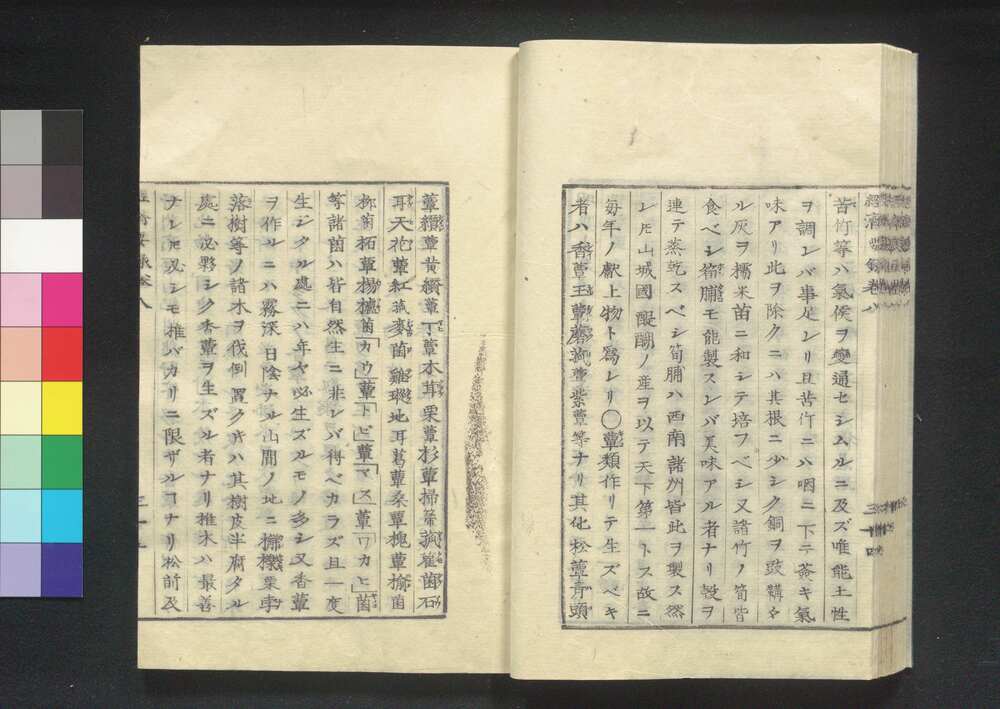 苦竹等ハ氣侯ヲ變通セシムルニ及ズ唯能土性
ヲ調レバ事足レリ且苦竹ニハ咽ニ下ニ薟キ氣
味アリ此ヲ除クニハ其根ニ少シク銅ヲ
ル灰ヲ糯米苗ニ和シテ培フベシ又諸竹ノ筍皆
食ベシ筍脯モ能製スレバ美味アル者ナリ殼ヲ
連テ蒸乾スベシ筍脯ハ西南諸州皆此ヲ製ス然
レ𪜈山城國醍醐ノ産ヲ以テ天下第一トス故ニ
毎年ノ獻上物ト爲レリ〇蕈類作リテ生ズベキ
者ハ香蕈玉蕈蘑菰蕈紫蕈等ナリ其化松蕈青頭
經濟要録卷八
三十四
蕈纐蕈黄纐蕈丁蕈木茸栗蕈杉蕈掃箒菰雚菌石
耳天花蕈紅菰麥菌雞㙡地耳葛蕈桑蕈槐蕈榆菌
柳菌柘蕈楊櫨菌「カウ蕈「トビ蕈「マス蕈「ワカヒ菌
等諸菌ハ皆自然生ニ非レバ得ベカラズ且一度
生シタル處ニハ年々必生ズルモノ多シ又香蕈
ヲ作ルニハ霧深日陰ナル山間ノ地ニ槠櫟栗李
落樹等ノ諸木ヲ伐倒置ク𪜈ハ其樹皮半腐タル
處ニ必夥シク香蕈ヲ生ズル者ナリ推木ハ最善
ナレ𪜈必シモ推バカリニ限ザルヿナリ松前及
經濟要録卷八